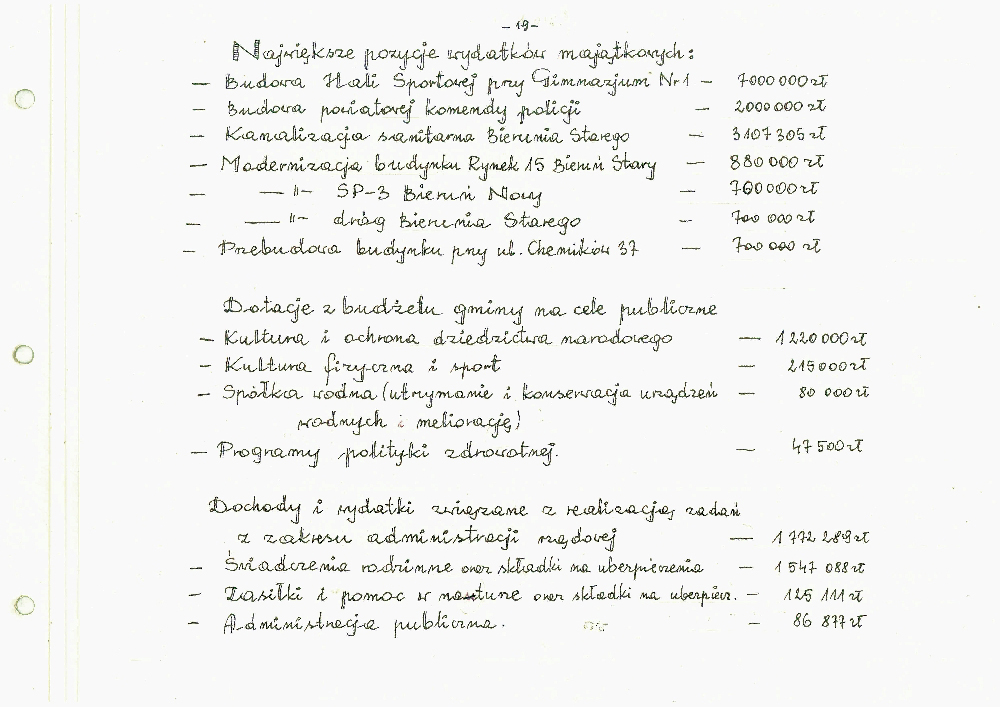 - 19 -
Największe pozycje wydatków majątkowych:
— Budowa Hali Sportowej przy Gimnazjum Nr 1 — 7000 000 zł
— Budowa powiatowej komendy policji — 2000 000 zł
— Kanalizacja sanitarna Bierunia Starego — 3107 305 zł
— Modernizacja budynku Rynek 15 Bieruń Stary — 880 000 zł
— —"— SP-3 Bieruń Nowy — 760 000 zł
— —"— dróg Bierunia Starego — 700 000 zł
— Przebudowa budynku przy ul. Chemików 37 — 700 000 zł
Dotacje z budżetu gminy na cele publiczne
— Kultura i ochrona dziedzictwa narodowego — 1 220 000 zł
— Kultura fizyczna i sport — 215 000 zł
— Spółka wodna (utrzymanie i konserwacja urządzeń — 80 000 zł
wodnych i meliorację)
— Programy polityki zdrowotnej. — 47 500 zł
Dochody i wydatki związane z realizacją zadań
z zakresu administracji rządowej — 1 772 289 zł
— Świadczenia rodzinne oraz składki na ubezpieczenia — 1 547 088 zł
— Zasiłki i pomoc w naturze oraz składki na ubezpiecz. — 125 111 zł
— Administracja publiczna. — 86 877 zł